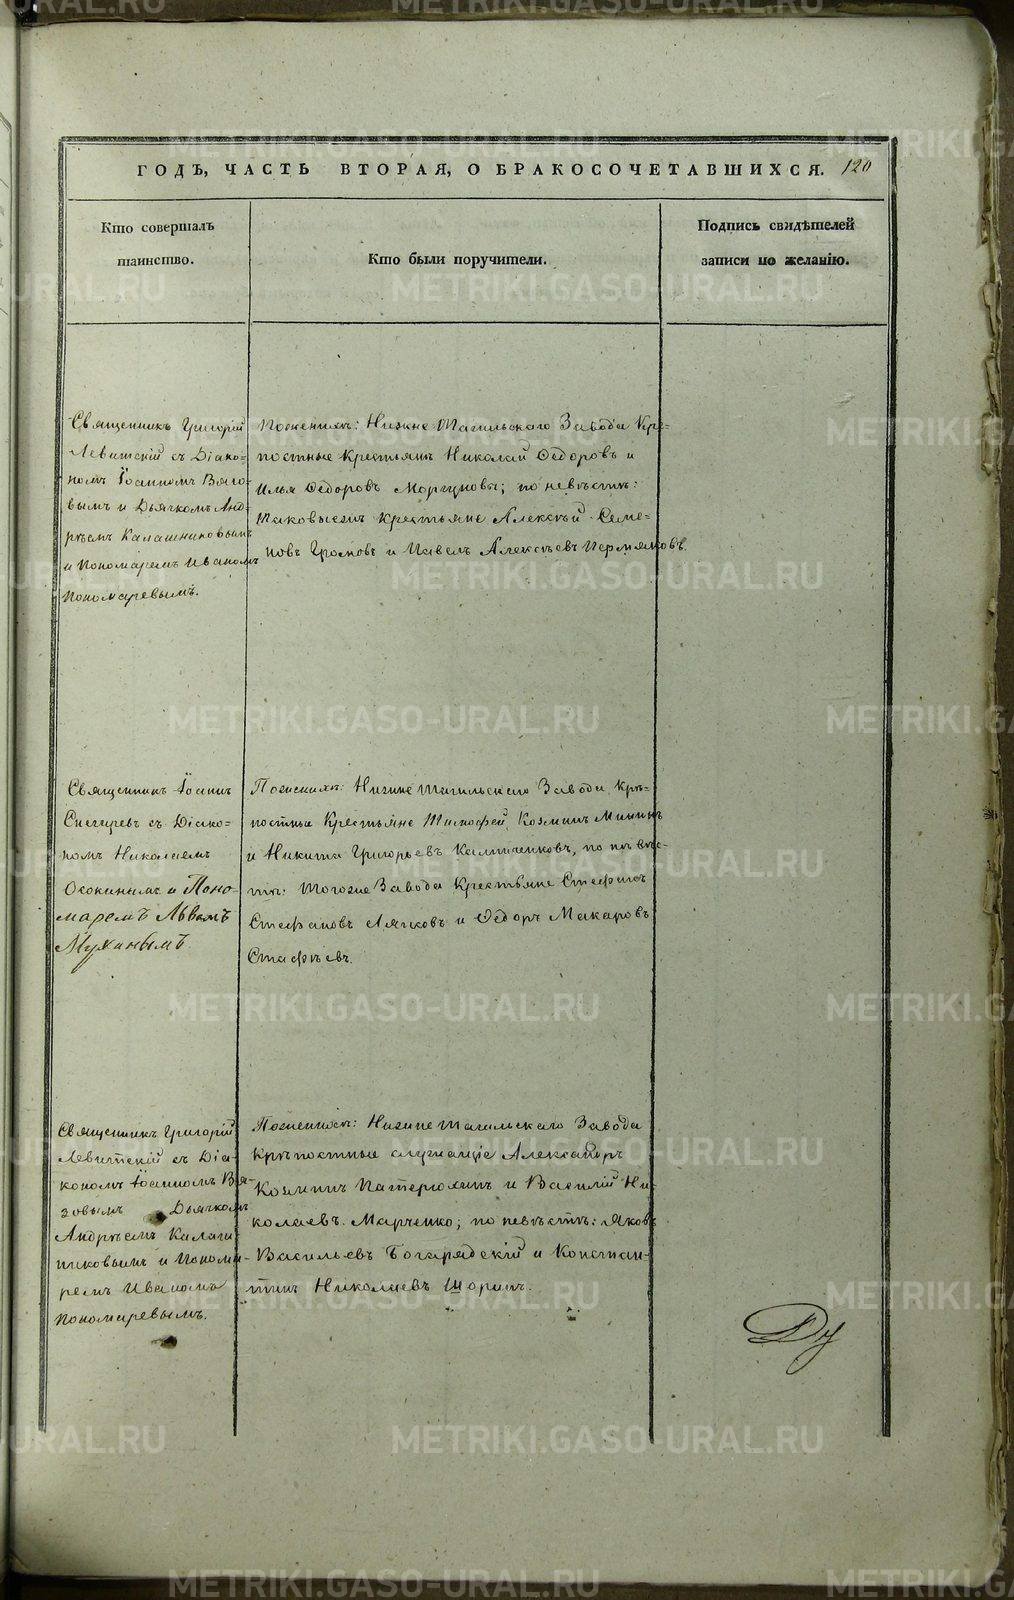 ГОДЪ, ЧАСТЬ ВТОРАЯ, О БРАКОСОЧЕТАВШИХСЯ. 120
Кто совершалъ
таинство.
Кто были поручители.
Подпись свидѣтелей
записи по желанію.
Священникъ Григорій
Левитскій съ Діако-
номъ Іоанномъ Вязо-
вымъ и Дьячкомъ Анд-
реемъ Калашниковымъ
и Пономаремъ Иваномъ
Пономаревымъ.
По женихѣ: Нижне Тагильскаго Завода Крѣ-
постные Крестьяне Николай Ѳедоровъ и
Илья Ѳедоровъ Моргуновы; по невѣстѣ:
таковыежъ Крестьяне Алексѣй Семе-
новъ Громовъ и Павелъ Алексѣевъ Пермяковъ.
Священникъ Іоаннъ
Снегиревъ съ Діако-
номъ Николаемъ
Осокинымъ и Поно-
маремъ Львомъ
Мухинымъ.
По женихѣ: Нижне Тагильскаго Завода Крѣ-
постные Крестьяне Тимофей Козминъ Мининъ
и Никита Григорьевъ по невѣс-
тѣ: тогоже Завода Крестьяне
Стефановъ и Ѳедоръ Макаровъ
Стафѣевъ.
Священникъ Григорій
Левитскій съ Діа-
кономъ Іоанномъ Вя-
зовымъ Дьячкомъ
Андреемъ Калаш-
никовымъ и Понома-
ремъ Иваномъ
Пономаревымъ.
По женихѣ: Нижне Тагильскаго Завода
Крѣпостные служащіе Александръ
Козминъ Патерюхинъ и Василій Ни-
колаевъ Марченко; по невѣстѣ: Яковъ
Васильевъ Богарядскій и Констан-
тинъ Николаевъ Шоринъ.
METRIKI.GASO-URAL.RU